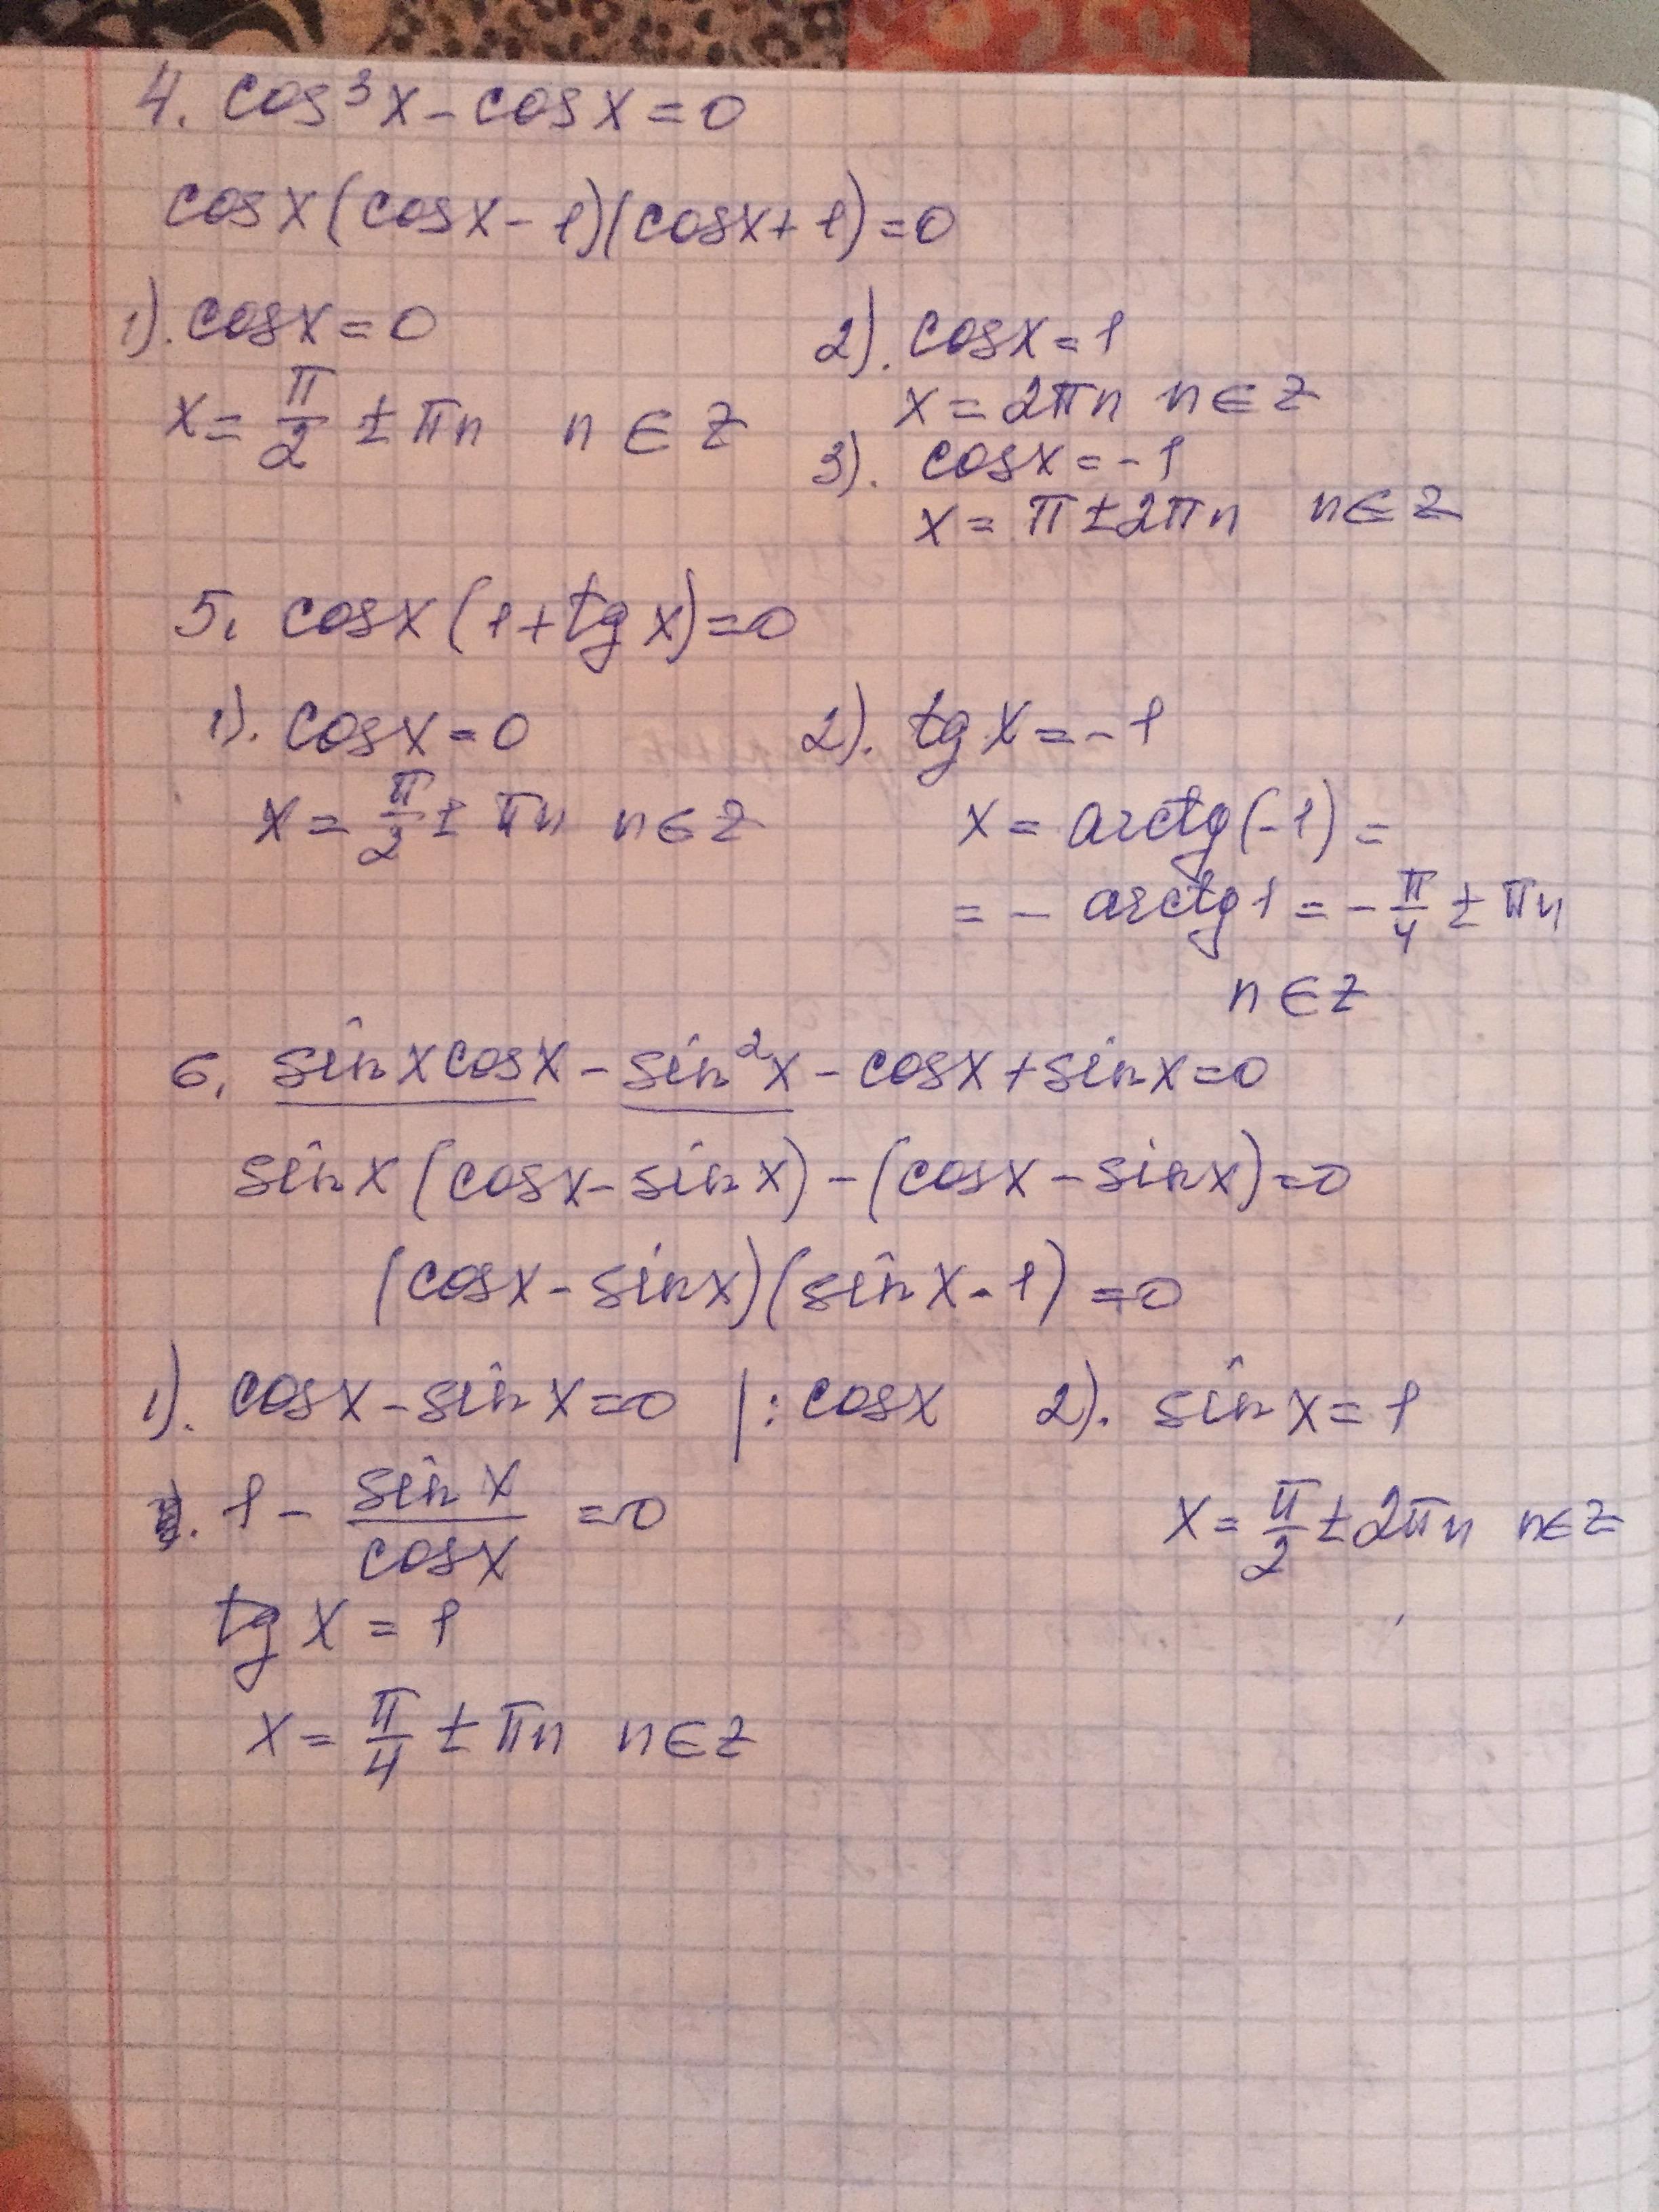 4. cos³x - cosx = 0
cosx(cosx - 1)(cosx + 1) = 0
1). cosx = 0
x = π/2 ± πn n ∈ Z
2). cosx = 1
x = 2πn n ∈ Z
3). cosx = -1
x = π ± 2πn n ∈ Z
5. cosx(1 + tg x) = 0
1). cosx = 0
x = π/2 ± πn n ∈ Z
2). tg x = -1
x = arctg(-1) =
= - arctg 1 = - π/4 ± πn
n ∈ Z
6. sin x cosx - sin²x - cosx + sinx = 0
sin x (cosx - sin x) - (cosx - sinx) = 0
(cosx - sinx)(sin x - 1) = 0
1). cosx - sin x = 0 | : cosx
1 - sin x/cosx = 0
tg x = 1
x = π/4 ± πn n ∈ Z
2). sin x = 1
x = π/2 ± 2πn n ∈ Z